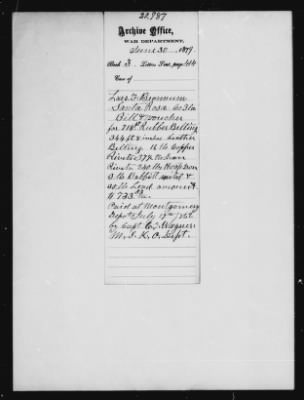 22,987
Archive Office,
WAR DEPARTMENT,
June 30, 1879
Book 3. Letter page 44
Case of
Santa Rosa Co Fla
Bill & Voucher
for Rubber Belting
344 ft & inches Leather
Belting 16 lb Copper
Rivets 77 lb Iron
Rivets 240 lbs Hoop Iron
3 lb Babbitt metal &
lb Lead amount
$ 733.
Paid at Montgomery
Depot July 17
by Capt C. J. Wagner
M. S. K. O. Dept.